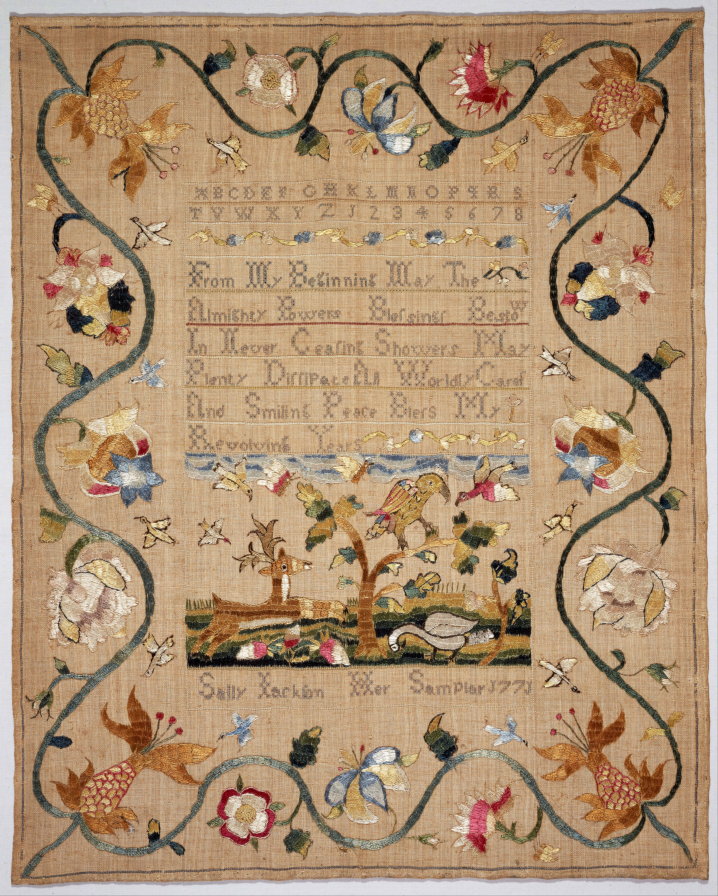 A B C D E F G H K L M N O P Q R S
T V W X Y Z 1 2 3 4 5 6 7 8
From My Beginning May The
Almighty Powers Blessings Bestow
In Never Ceasing Showers May
Plenty Dissipate All Worldly Cares
And Smiling Peace Bless My
Revolving Years
Sally Jackson Her Samplar 1771